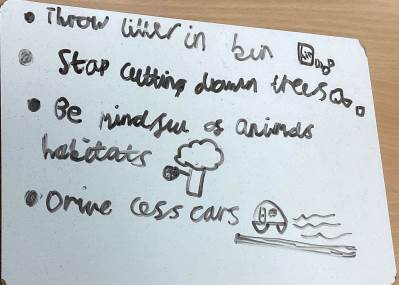 • Throw litter in bin
• Stop cutting down trees
• Be mindful of animals
habitats
• Drive less cars